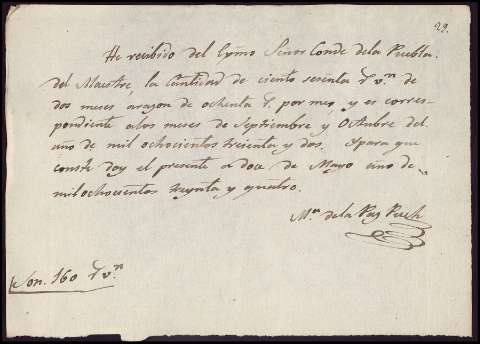 29.
He recibido del Exmo Señor Conde dela Puebla
del Maestre, la Cantidad de ciento sesenta rs vn de
dos meses arazon de ochenta rs. por mes, y es corres-
pondiente alos meses de Septiembre y Octubre del
ano de mil ochocientos treienta y dos. Ypara que
conste doy el presente a doce de Mayo ano de
milochocientos treynta y quatro.
Ma dela Paz
Son. 160 rs vn